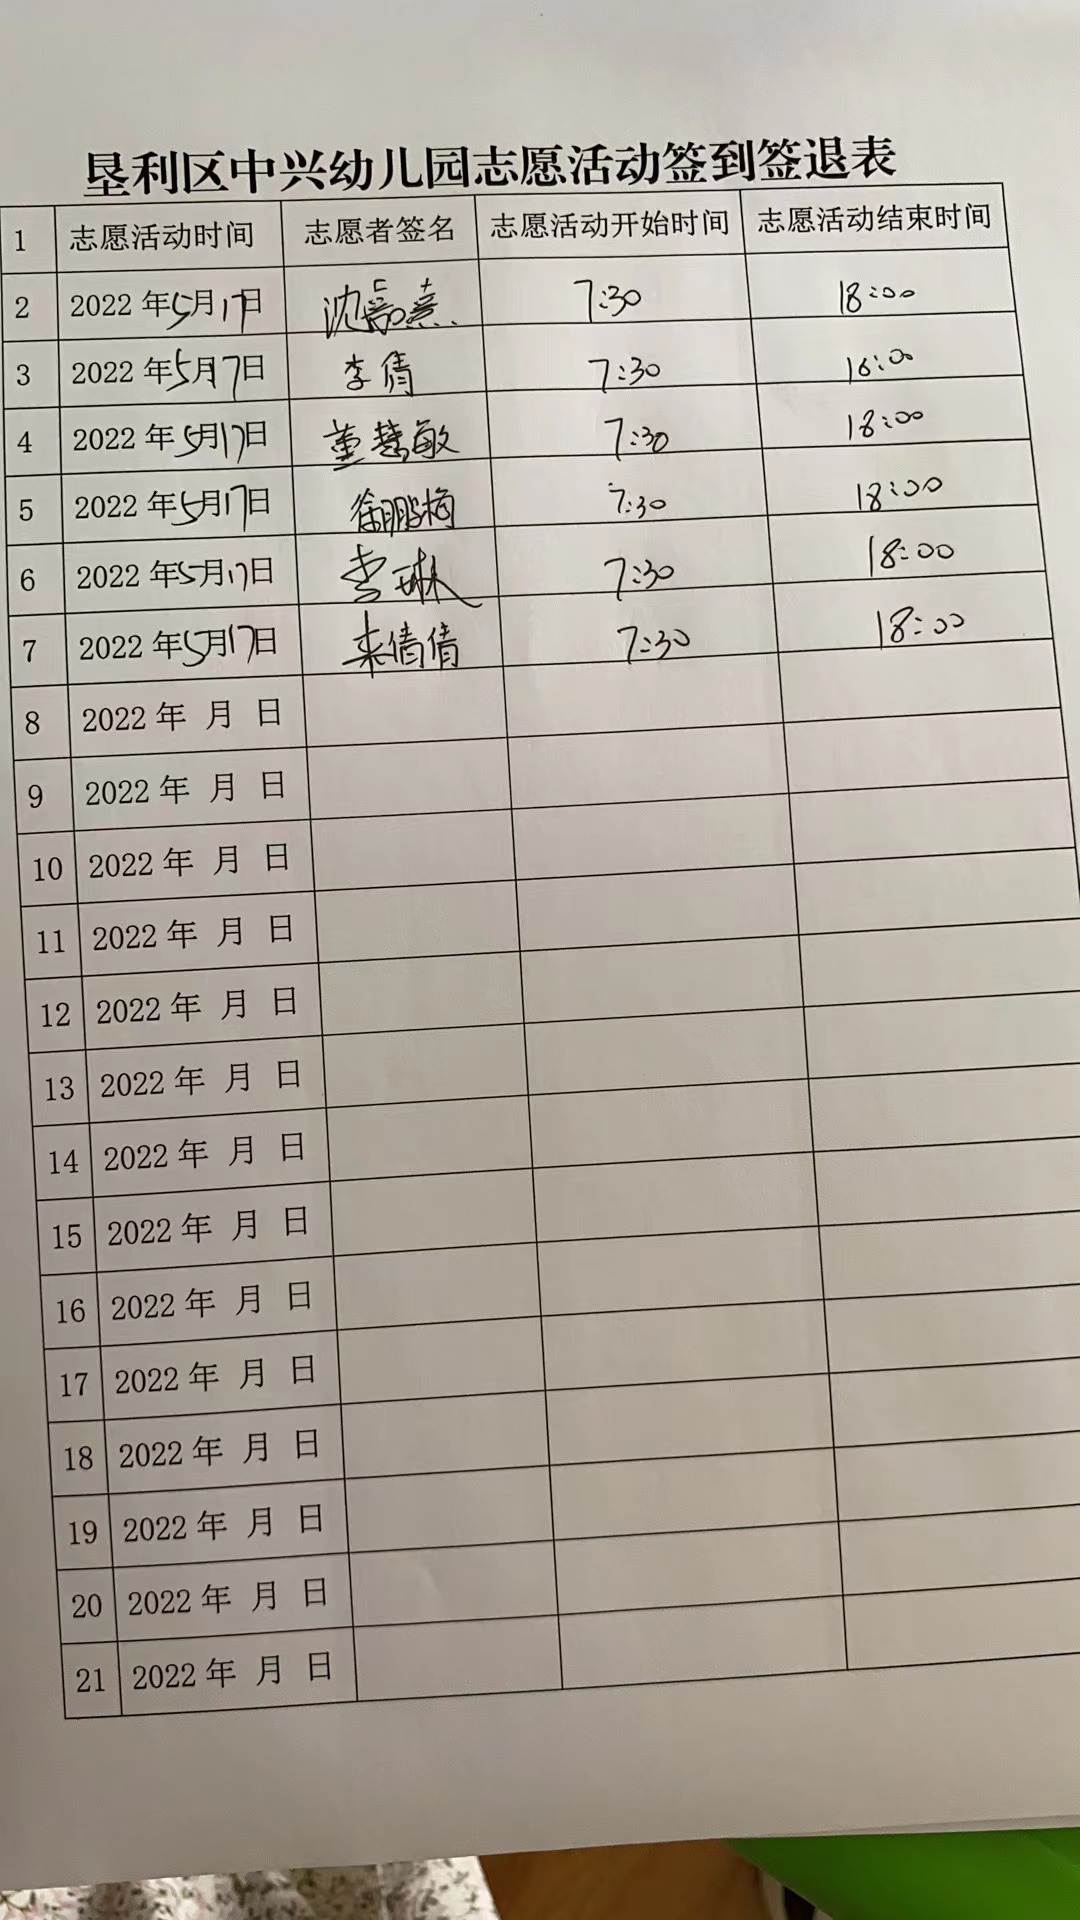 垦利区中兴幼儿园志愿活动签到签退表
1 志愿活动时间 志愿者签名 志愿活动开始时间 志愿活动结束时间
2 2022年5月17日 沈 熹 7:30 18:00
3 2022年5月7日 李倩 7:30 16:00
4 2022年5月17日 董慧敏 7:30 18:00
5 2022年5月17日 徐鹏梅 7:30 18:00
6 2022年5月17日 李琳 7:30 18:00
7 2022年5月17日 来倩倩 7:30 18:00
8 2022年 月 日
9 2022年 月 日
10 2022年 月 日
11 2022年 月 日
12 2022年 月 日
13 2022年 月 日
14 2022年 月 日
15 2022年 月 日
16 2022年 月 日
17 2022年 月 日
18 2022年 月 日
19 2022年 月 日
20 2022年 月 日
21 2022年 月 日